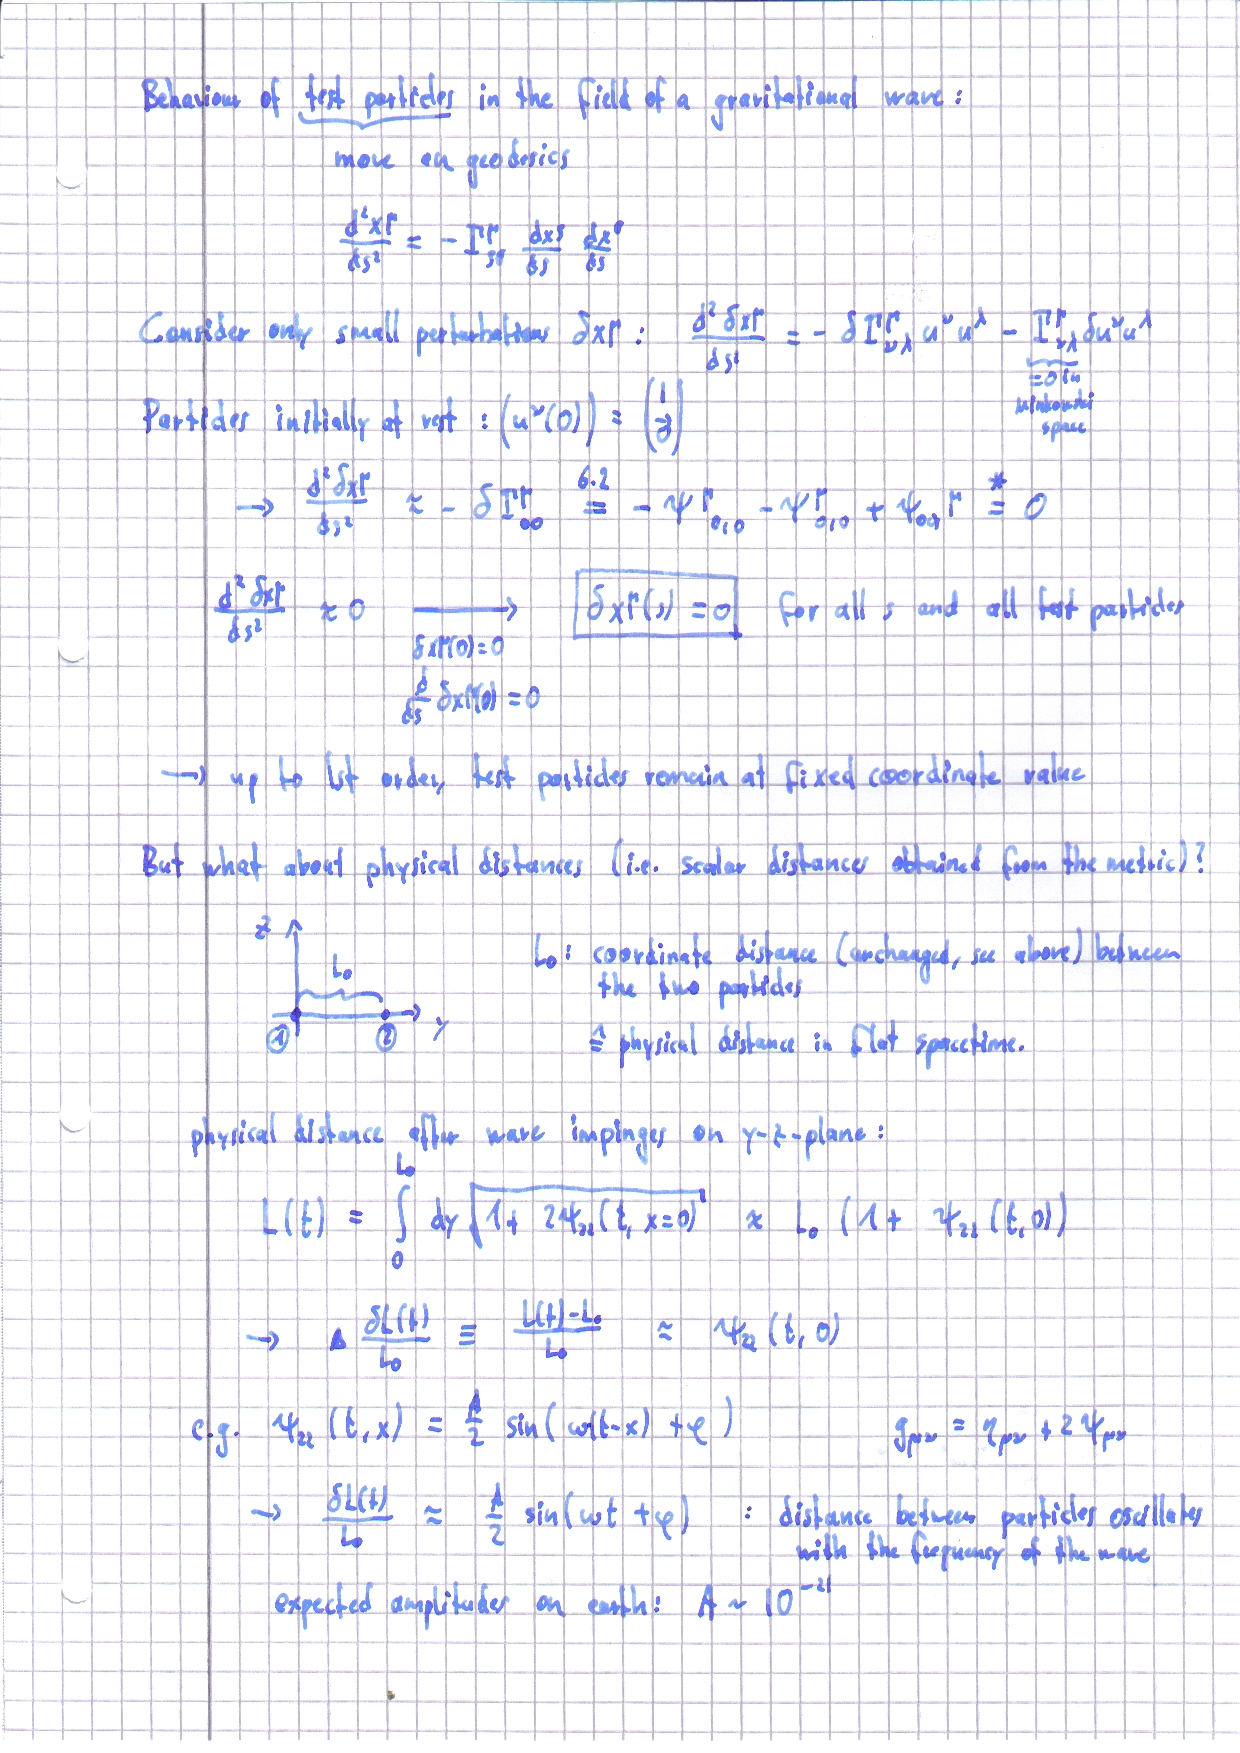 Behaviour of test particles in the field of a gravitational wave:
move on geodesics
d²x^μ/ds² = - Γ^μ_ρσ dx^ρ/ds dx^σ/ds
Consider only small perturbations δx^μ : d²δx^μ/ds² = - δΓ^μ_νλ u^ν u^λ - Γ^μ_νλ δu^ν u^λ
=0 in
Minkowski
space
Particles initially at rest : (u^ν(0)) = (1 0⃗)
→ d²δx^μ/ds² ≈ - δΓ^μ_00 =(6.2) - ψ^μ_0,0 - ψ^μ_0,0 + ψ_00,^μ =(*) 0
d²δx^μ/ds² ≈ 0 ⟶ δx^μ(s) = 0 for all s and all test particles
δx^μ(0) = 0
d/ds δx^μ(0) = 0
→ up to 1st order, test particles remain at fixed coordinate value
But what about physical distances (i.e. scalar distances obtained from the metric)?
z
L₀
① ② y
L₀: coordinate distance (unchanged, see above) between
the two particles
≙ physical distance in flat spacetime.
physical distance after wave impinges on y-z-plane:
L(t) = ∫₀^L₀ dy √(1 + 2ψ₂₂(t, x=0)) ≈ L₀ (1 + ψ₂₂(t,0))
→ δL(t)/L₀ ≡ (L(t)-L₀)/L₀ ≈ ψ₂₂(t, 0)
e.g. ψ₂₂(t,x) = A/2 sin(ω(t-x) + φ) g_μν = η_μν + 2ψ_μν
→ δL(t)/L₀ ≈ A/2 sin(ωt + φ) : distance between particles oscillates
with the frequency of the wave
expected amplitudes on earth: A ~ 10⁻²¹